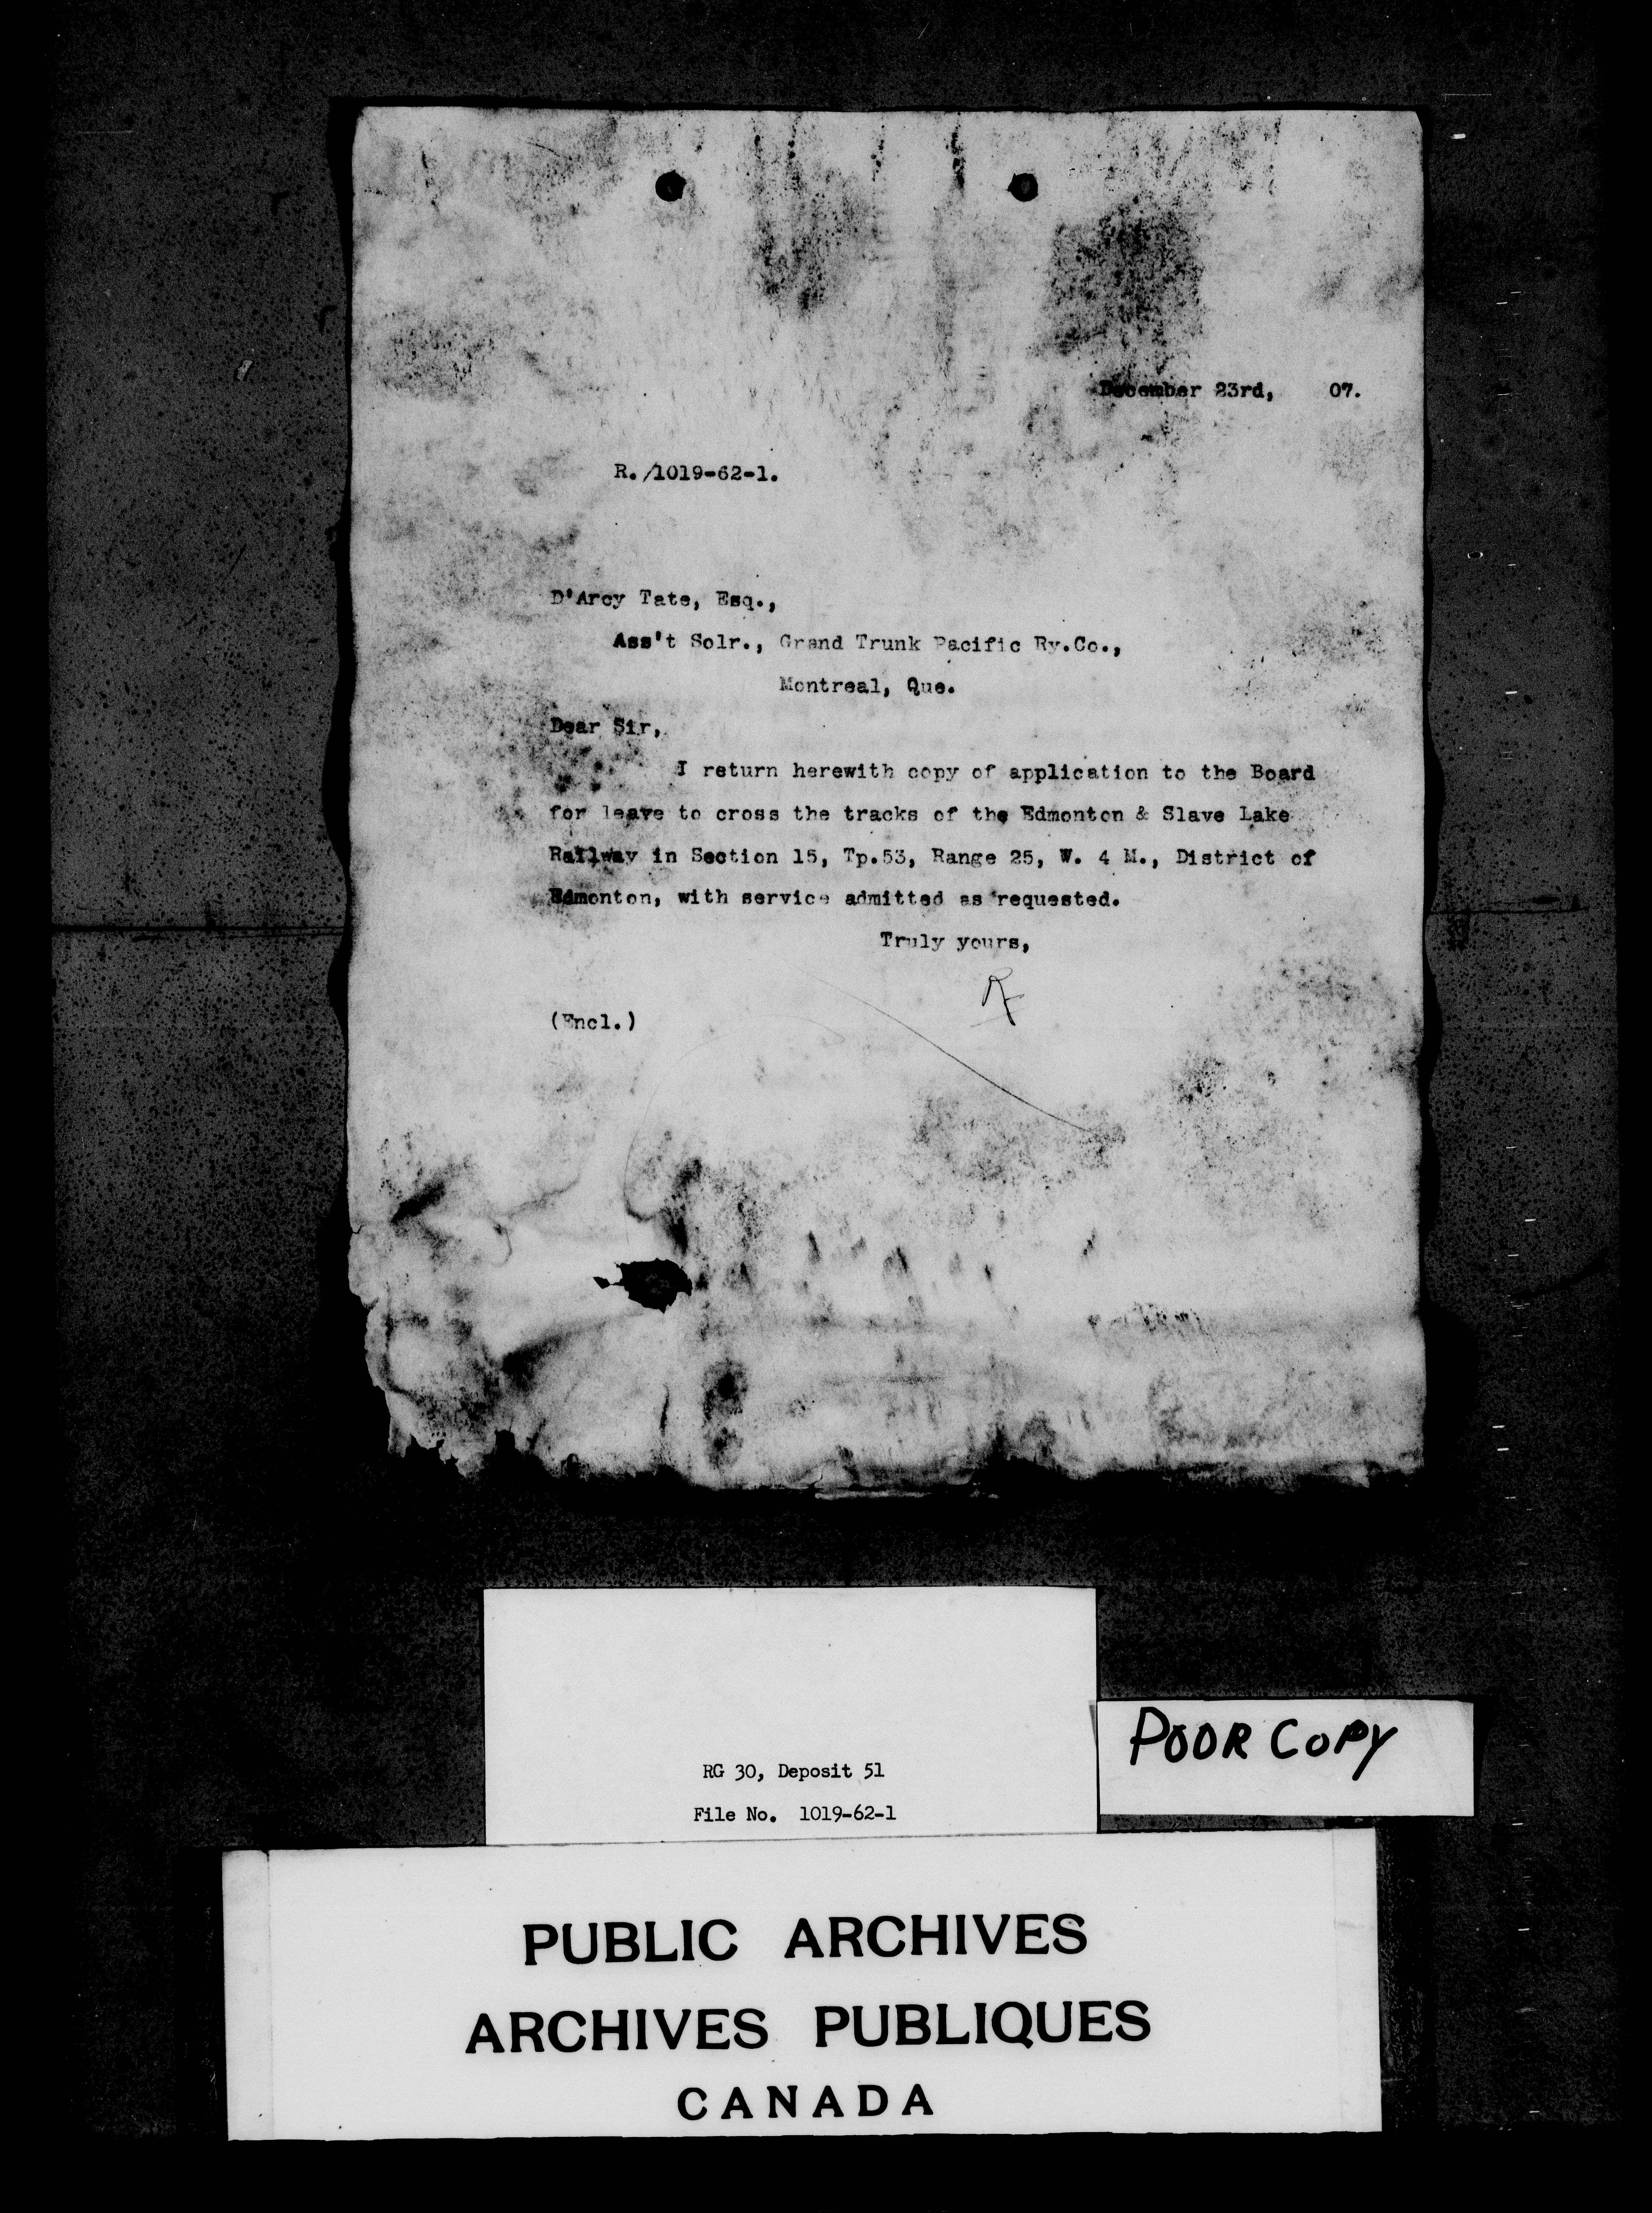 December 23rd, 07.
R./1019-62-1.
D'Arcy Tate, Esq.,
Ass't Solr., Grand Trunk Pacific Ry.Co.,
Montreal, Que.
Dear Sir,
I return herewith copy of application to the Board
for leave to cross the tracks of the Edmonton & Slave Lake
Railway in Section 15, Tp.53, Range 25, W. 4 M., District of
Edmonton, with service admitted as requested.
Truly yours,
R
(Encl.)
RG 30, Deposit 51
File No. 1019-62-1
POOR COPY
PUBLIC ARCHIVES
ARCHIVES PUBLIQUES
CANADA